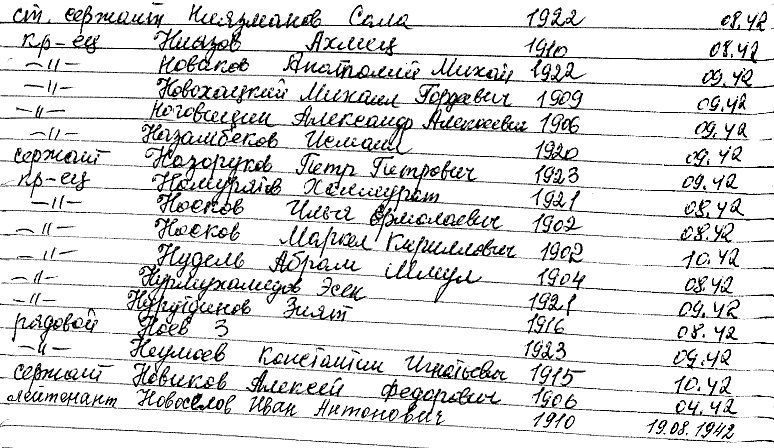 ст. сержант Ниязманов Сала 1922 08.42
кр-ец Ниязов Ахмец 1910 08.42
-"- Новаков Анатолий Михай 1922 09.42
-"- Новохацкий Михаил Гордеевич 1909 09.42
-"- Ноговицин Александр Алексеевич 1906 09.42
-"- Назамбеков Исмаил 1920 09.42
сержант Назоруков Петр Петрович 1923 09.42
кр-ец Намуратов Холмурат 1921 09.42
-"- Носков Илья Ермолаевич 1902 08.42
-"- Носков Маркел Кириллович 1902 08.42
-"- Нудель Абрам Шмул 1904 10.42
-"- Нурмухамедов Эсен 1921 08.42
-"- Нурутдинов Зият 1916 09.42
рядовой Ноев З 1923 08.42
-"- Наумов Константин Игнатьевич 1915 09.42
сержант Новиков Алексей Федорович 1906 10.42
лейтенант Новоселов Иван Антонович 1910 04.42
19.08.1942